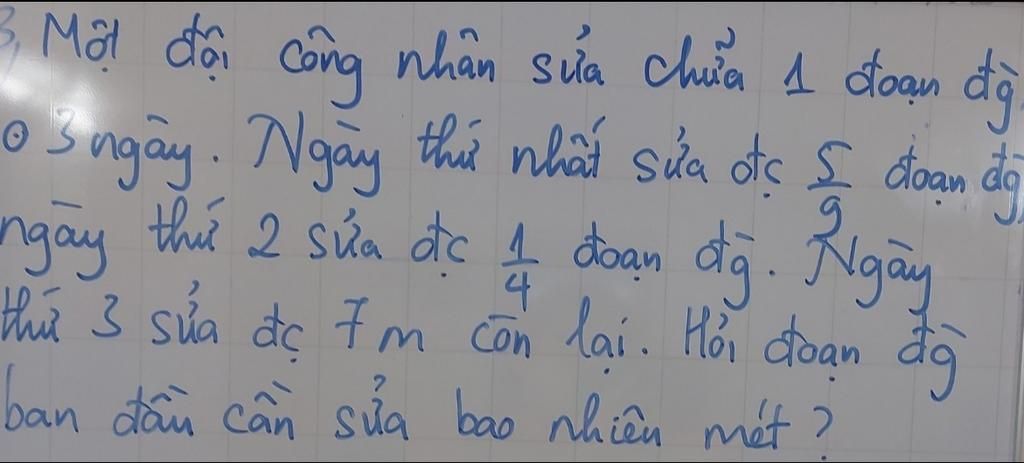 3, Một đội công nhân sửa chữa 1 đoạn đg̀
⊙ 3 ngày. Ngày thứ nhất sửa đc 5/9 đoạn đg̀,
ngày thứ 2 sửa đc 1/4 đoạn đg̀. Ngày
thứ 3 sửa đc 7 m còn lại. Hỏi đoạn đg̀
ban đầu cần sửa bao nhiêu mét?